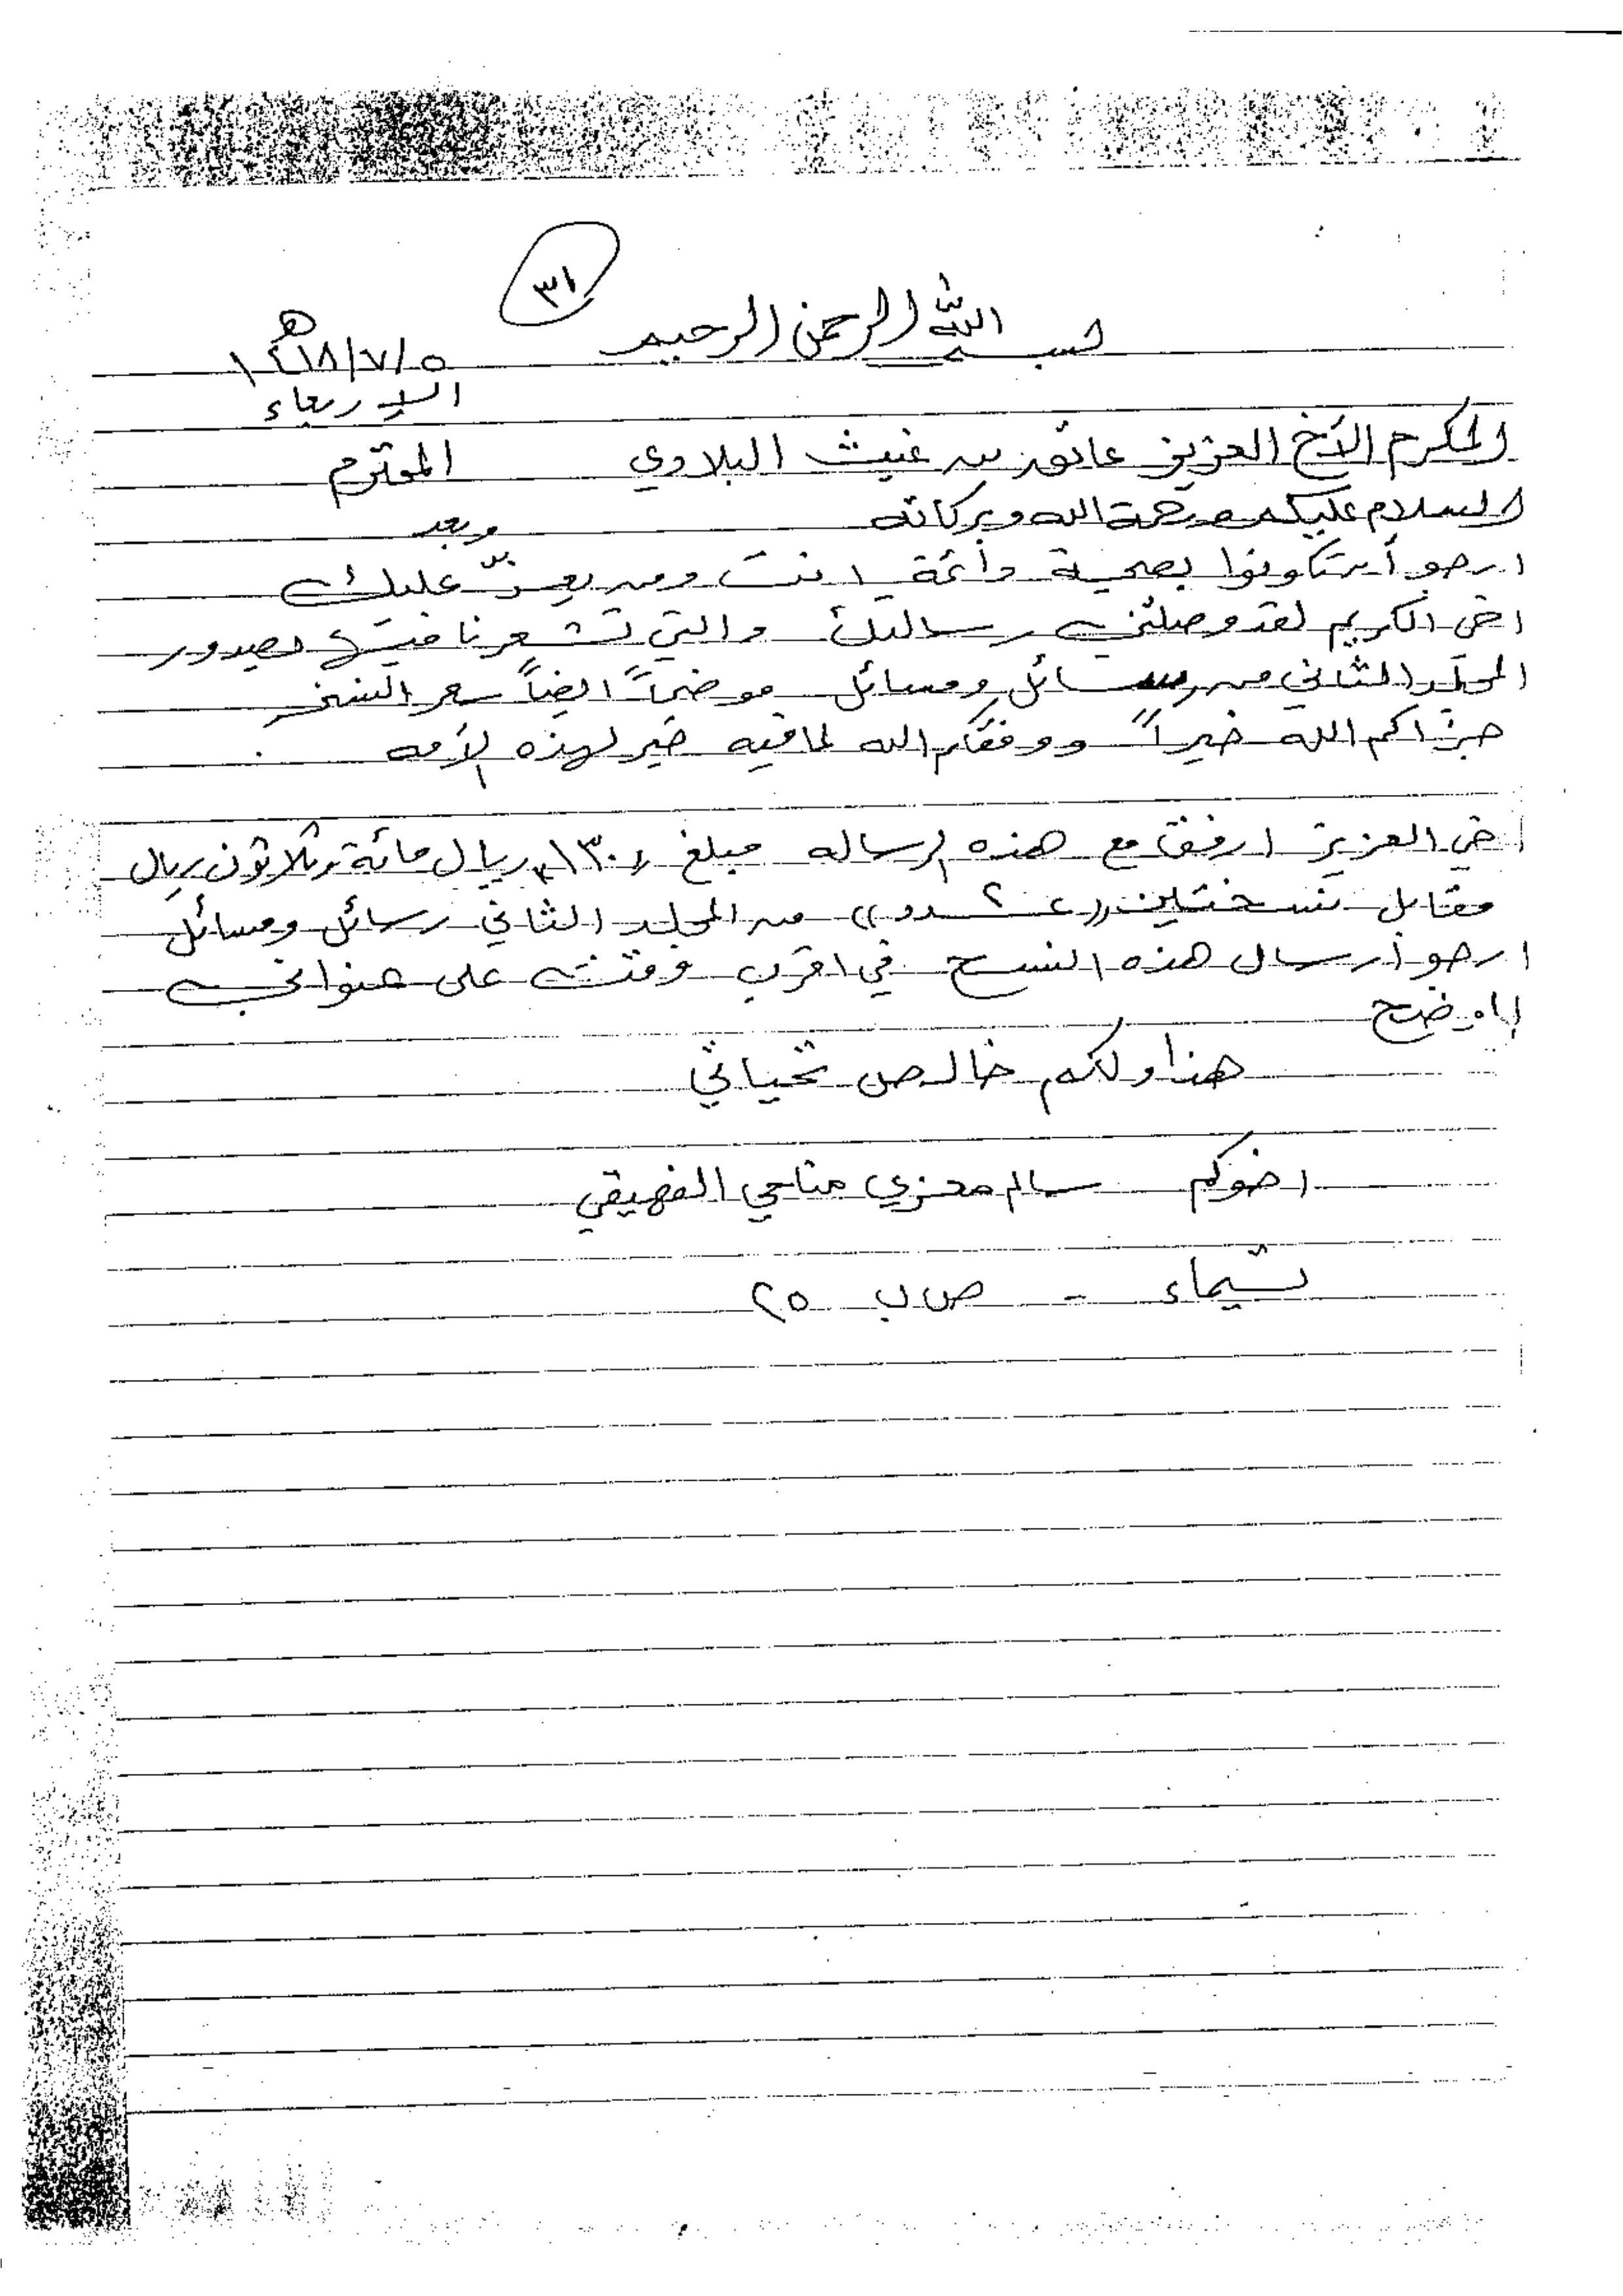 ٣١
بسم الله الرحمن الرحيم
١٤١٨/٧/٥ هـ
الاربعاء
المكرم الأخ العزيز عاتق بن غيث البلادي المحترم
السلام عليكم ورحمة الله وبركاته وبعد
ارجو أن تكونوا بصحية دائمة انت ومن يعزّ عليك
اخي الكريم لقد وصلتني رسالتك والتي تشعرنا فيها بصدور
المجلد الثاني من رسائل ومسائل موضحاً ايضاً سعر النسخ
جزاكم الله خيراً ووفقكم الله لما فيه خير لهذه الأمه .
اخي العزيز ارفق مع هذه الرساله مبلغ ١٣٠ ريال مائة وثلاثون ريال
مقابل نسختين ((عدد ٢)) من المجلد الثاني رسائل ومسائل
ارجو ارسال هذه النسخ في اقرب وقت على عنواني
الموضح
هذا ولكم خالص تحياتي
اخوكم سالم معزي مناحي الفهيقي
تيماء - ص ب ٢٥